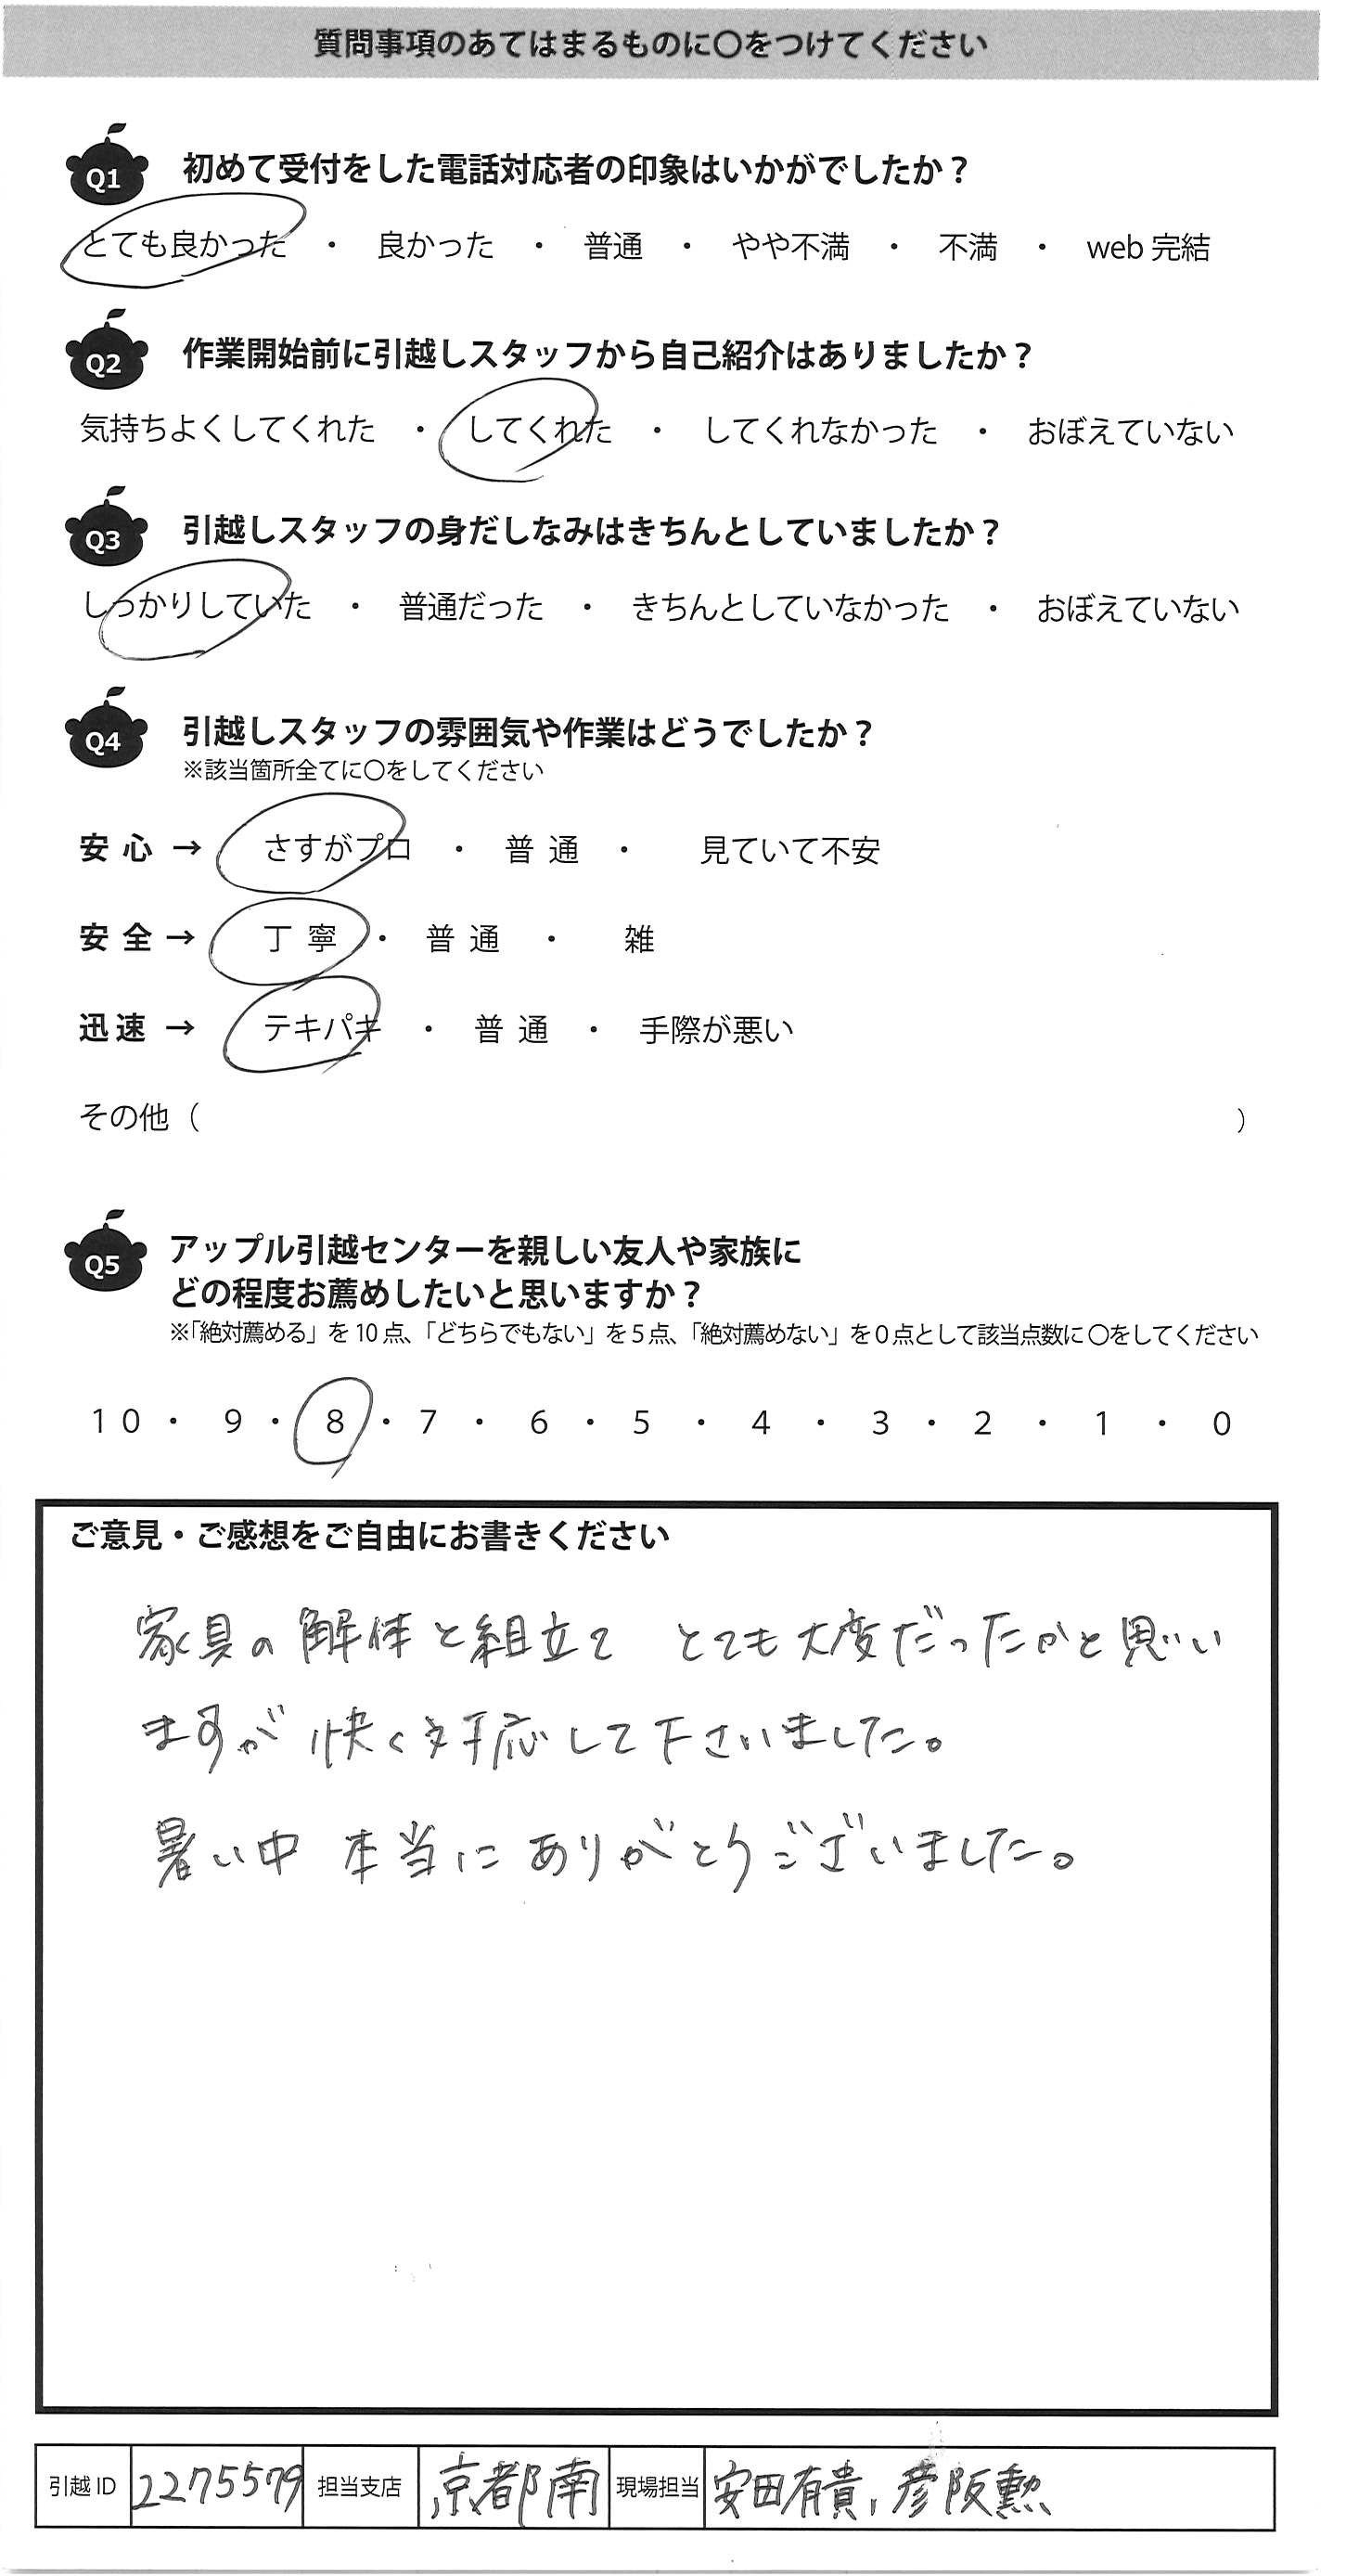 質問事項のあてはまるものに〇をつけてください
Q1 初めて受付をした電話対応者の印象はいかがでしたか？
とても良かった ・ 良かった ・ 普通 ・ やや不満 ・ 不満 ・ web 完結
Q2 作業開始前に引越しスタッフから自己紹介はありましたか？
気持ちよくしてくれた ・ してくれた ・ してくれなかった ・ おぼえていない
Q3 引越しスタッフの身だしなみはきちんとしていましたか？
しっかりしていた ・ 普通だった ・ きちんとしていなかった ・ おぼえていない
Q4 引越しスタッフの雰囲気や作業はどうでしたか？
※該当箇所全てに〇をしてください
安 心 → さすがプロ ・ 普 通 ・ 見ていて不安
安 全 → 丁 寧 ・ 普 通 ・ 雑
迅 速 → テキパキ ・ 普 通 ・ 手際が悪い
その他（ ）
Q5 アップル引越センターを親しい友人や家族に
どの程度お薦めしたいと思いますか？
※「絶対薦める」を 10 点、「どちらでもない」を 5 点、「絶対薦めない」を 0 点として該当点数に 〇をしてください
10 ・ 9 ・ 8 ・ 7 ・ 6 ・ 5 ・ 4 ・ 3 ・ 2 ・ 1 ・ 0
ご意見・ご感想をご自由にお書きください
家具の解体と組立て とても大変だったかと思い
ますが 快く対応して下さいました。
暑い中 本当に ありがとうございました。
引越 ID 2275579 担当支店 京都南 現場担当 安田有貴, 彦阪勲